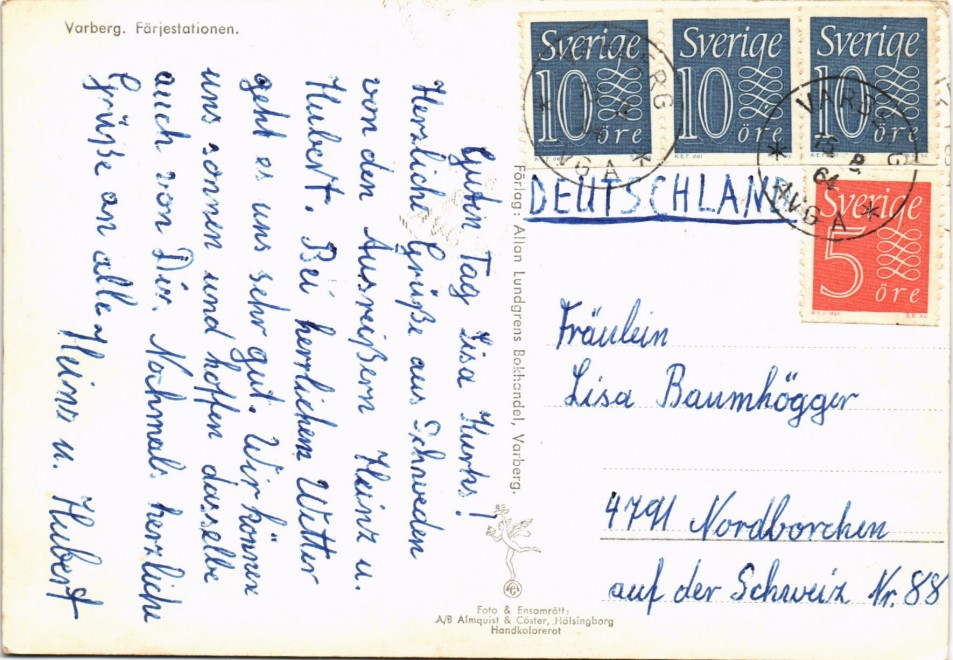 Varberg. Färjestationen.
Guten Tag Lisa Kurhs!
Herzliche Grüße aus Schweden
von den Ausreißern Heinz u.
Hubert. Bei herrlichem Wetter
geht es uns sehr gut. Wir können
uns sonnen und hoffen dasselbe
auch von Dir. Nochmals herzliche
Grüße an alle Heinz u. Hubert
Förlag: Allan Lundgrens Bokhandel, Varberg.
Foto & Ensamrätt:
A/B Almquist & Cöster, Hälsingborg
Handkolorerat
Sverige
10
öre
Sverige
10
öre
Sverige
10
öre
Sverige
5
öre
VARBERG
AVGA
DEUTSCHLAND
Fräulein
Lisa Baumhögger
4791 Nordborchen
auf der Schweiz Nr. 88